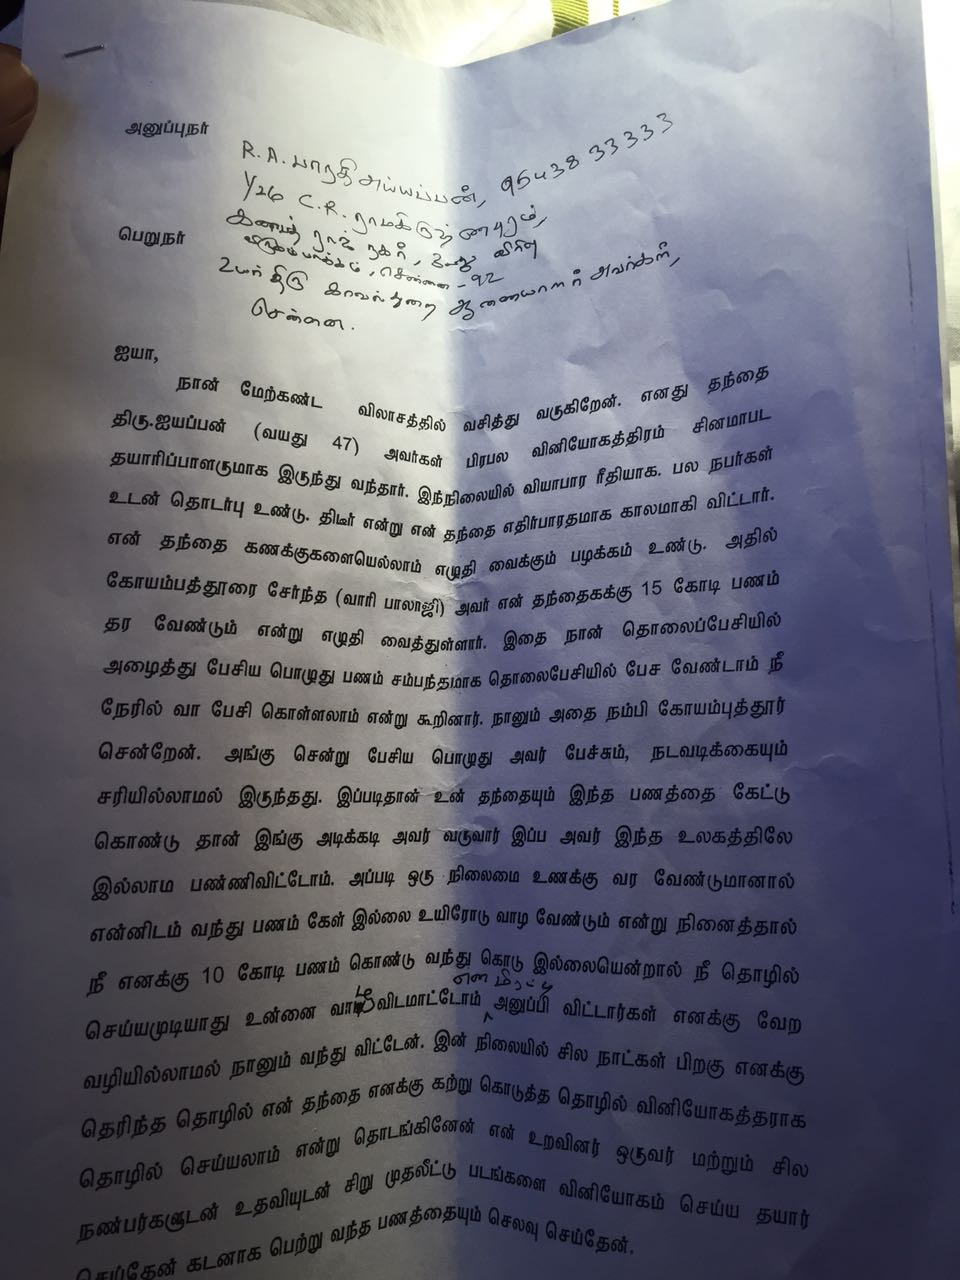 அனுப்புநர்
R.A.பாரதி அய்யப்பன், 95438 33333
1/26 C.R. ராமகிருஷ்ணபுரம்,
ராஜ் நகர், வீதி
விருகம்பாக்கம், சென்னை - 92
பெறுநர்
உயர்திரு காவல்துறை ஆணையாளர் அவர்கள்,
சென்னை.
ஐயா,
நான் மேற்கண்ட விலாசத்தில் வசித்து வருகிறேன். எனது தந்தை
திரு.ஐயப்பன் (வயது 47) அவர்கள் பிரபல வினியோகத்திரம் சினமாபட
தயாரிப்பாளருமாக இருந்து வந்தார். இந்நிலையில் வியாபார ரீதியாக. பல நபர்கள்
உடன் தொடர்பு உண்டு. திடீர் என்று என் தந்தை எதிர்பாரதமாக காலமாகி விட்டார்.
என் தந்தை கணக்குகளையெல்லாம் எழுதி வைக்கும் பழக்கம் உண்டு. அதில்
கோயம்பத்தூரை சேர்ந்த (வாரி பாலாஜி) அவர் என் தந்தைகக்கு 15 கோடி பணம்
தர வேண்டும் என்று எழுதி வைத்துள்ளார். இதை நான் தொலைப்பேசியில்
அழைத்து பேசிய பொழுது பணம் சம்பந்தமாக தொலைபேசியில் பேச வேண்டாம் நீ
நேரில் வா பேசி கொள்ளலாம் என்று கூறினார். நானும் அதை நம்பி கோயம்புத்தூர்
சென்றேன். அங்கு சென்று பேசிய பொழுது அவர் பேச்சும், நடவடிக்கையும்
சரியில்லாமல் இருந்தது. இப்படிதான் உன் தந்தையும் இந்த பணத்தை கேட்டு
கொண்டு தான் இங்கு அடிக்கடி அவர் வருவார் இப்ப அவர் இந்த உலகத்திலே
இல்லாம பண்ணிவிட்டோம். அப்படி ஒரு நிலைமை உணக்கு வர வேண்டுமானால்
என்னிடம் வந்து பணம் கேள் இல்லை உயிரோடு வாழ வேண்டும் என்று நினைத்தால்
நீ எனக்கு 10 கோடி பணம் கொண்டு வந்து கொடு இல்லையென்றால் நீ தொழில்
செய்யமுடியாது உன்னை விடமாட்டோம் என மிரட்டி அனுப்பி விட்டார்கள் எனக்கு வேற
வழியில்லாமல் நானும் வந்து விட்டேன். இன் நிலையில் சில நாட்கள் பிறகு எனக்கு
தெரிந்த தொழில் என் தந்தை எனக்கு கற்று கொடுத்த தொழில் வினியோகத்தராக
தொழில் செய்யலாம் என்று தொடங்கினேன் என் உறவினர் ஒருவர் மற்றும் சில
நண்பர்களுடன் உதவியுடன் சிறு முதலீட்டு படங்களை வினியோகம் செய்ய தயார்
செய்தேன் கடனாக பெற்று வந்த பணத்தையும் செலவு செய்தேன்.